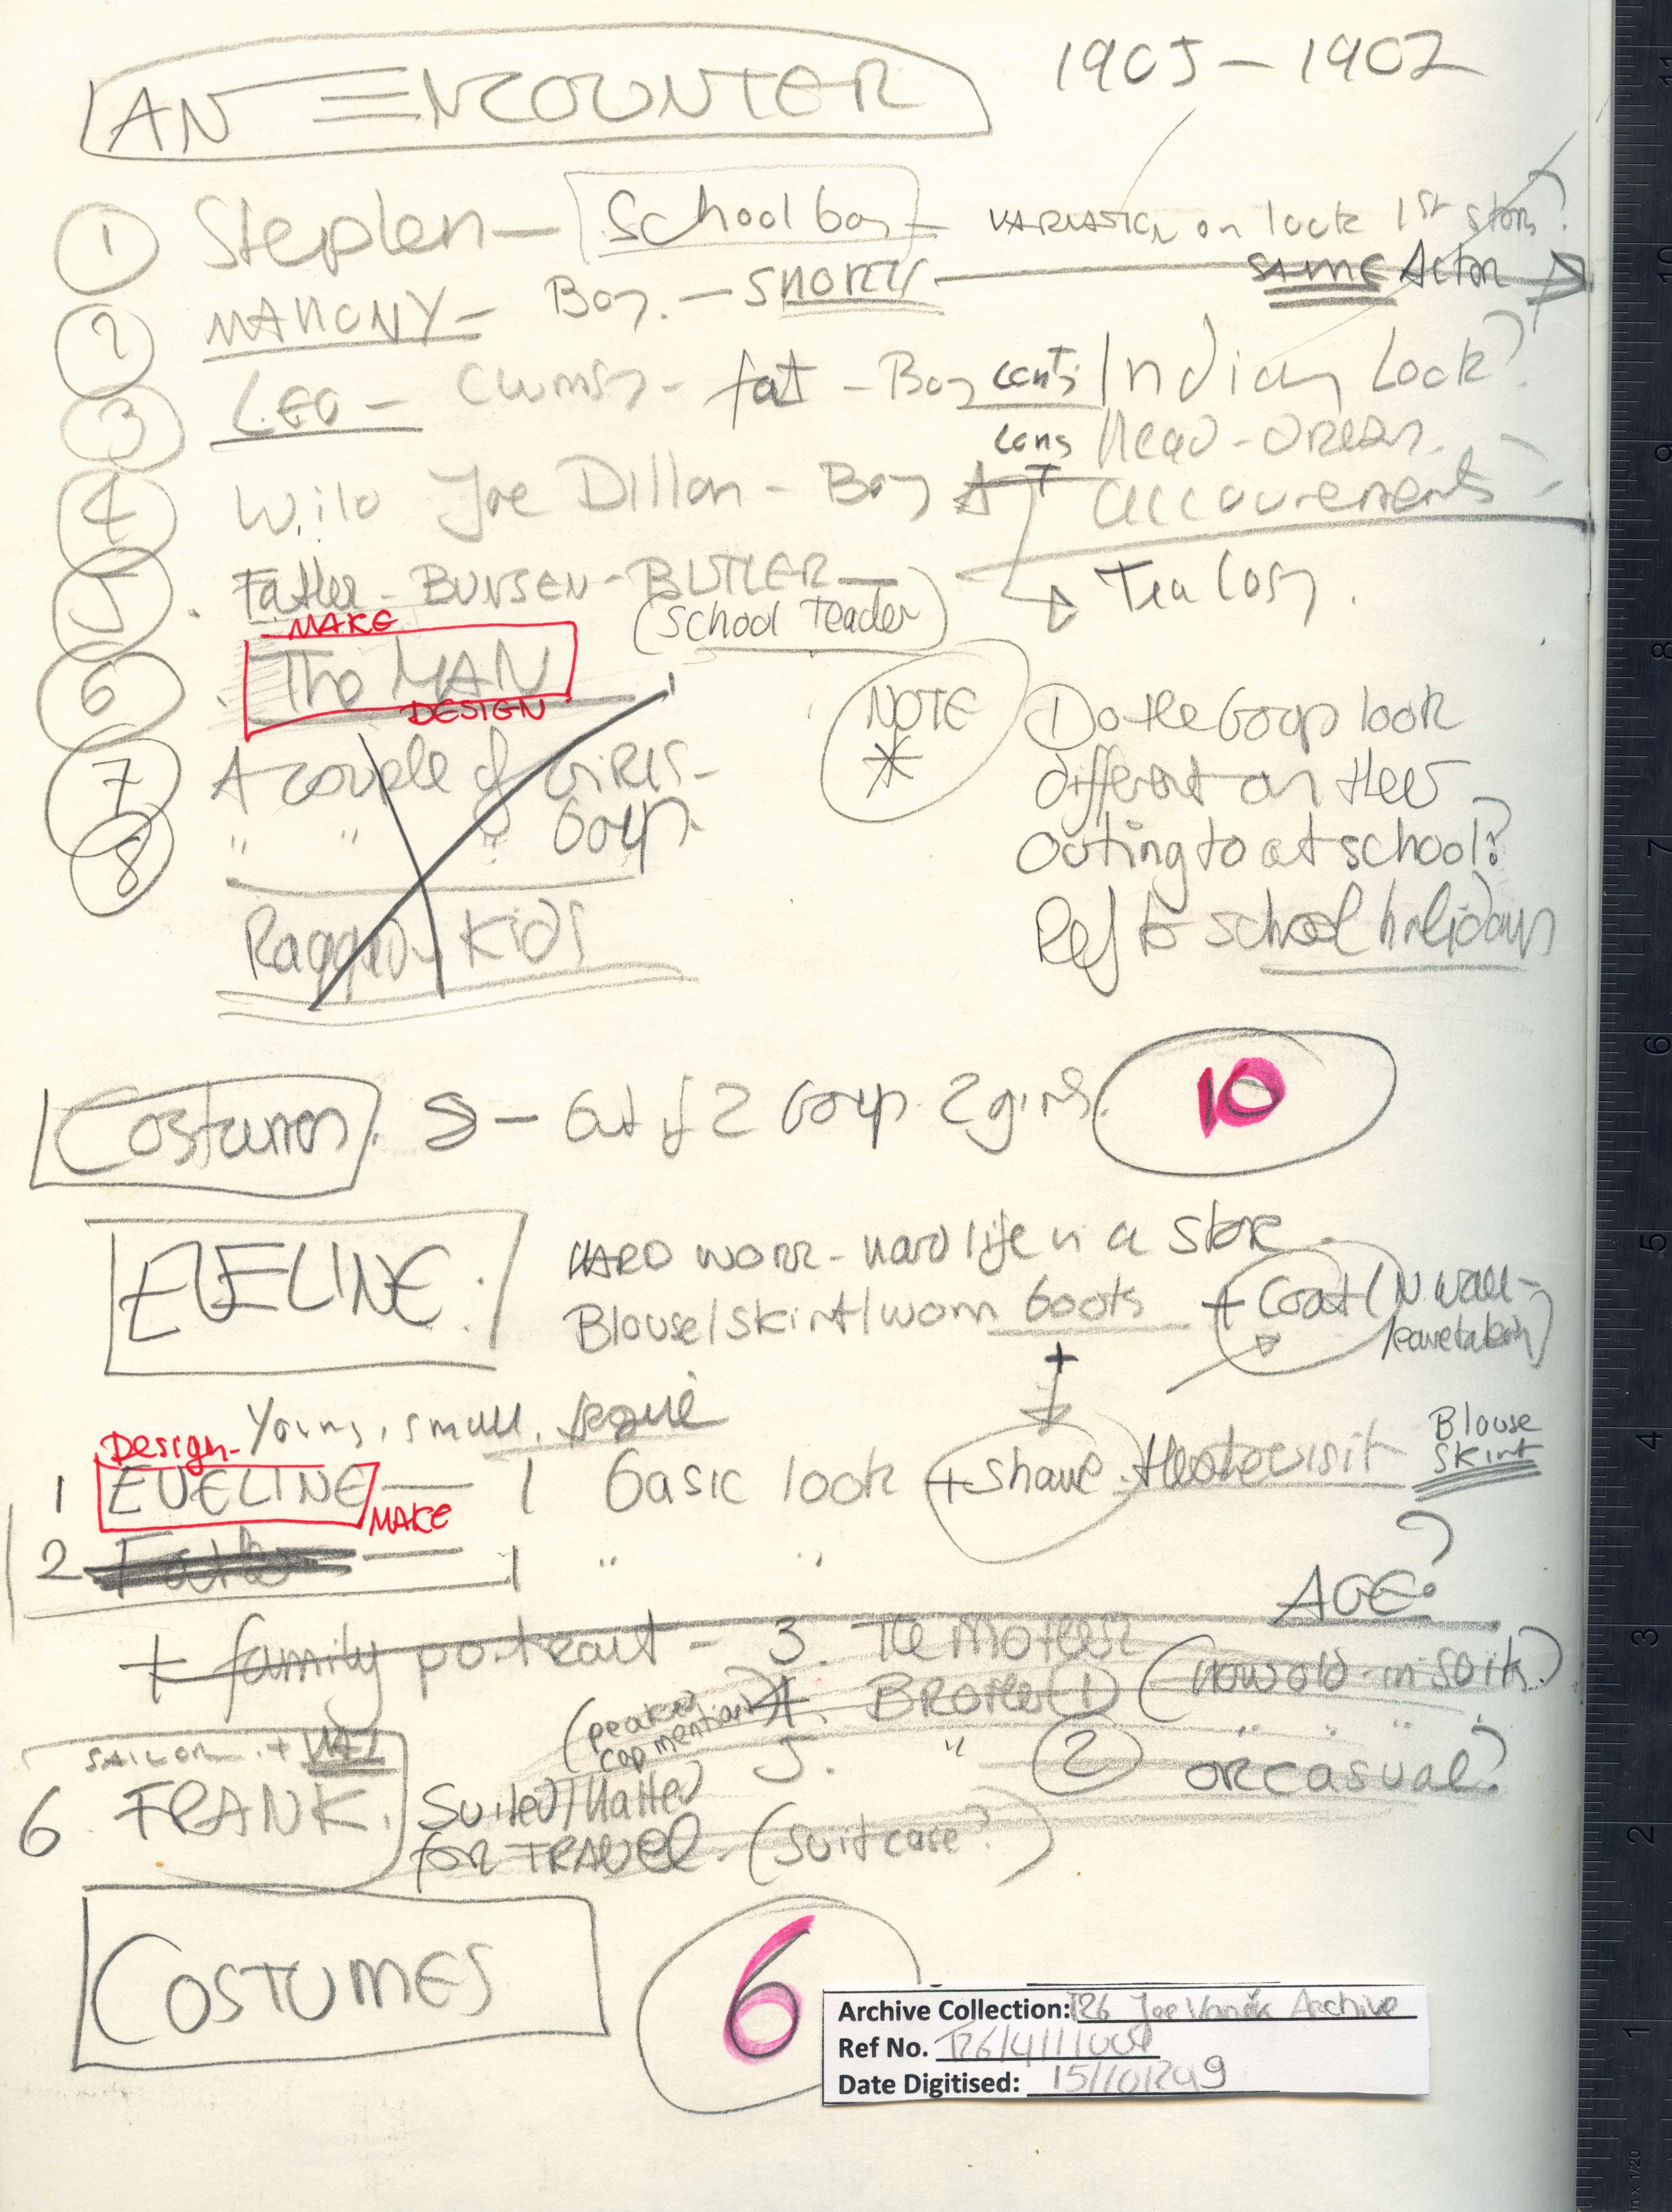 AN ENCOUNTER
1905 – 1902
① Stephen – School boy – VARIATION on look 1st story?
② MAHONY – Boy. – SHORTS – SAME Actor
③ LEO – Clumsy – fat – Boy Indian Look?
Head-dress
④ Wild Joe Dillon – Boy accourements
⑤ Father – BUNSEN – BUTLER – Tea Cosy.
(School Teacher)
MAKE
⑥ The MAN
DESIGN
⑦ A couple of Girls –
⑧ " " " boys.
Ragged Kids
NOTE
*
① Do the boys look
different on their
outing to at school?
Ref to school holidays
Costumes. 8 – 2 boys 2 girls. 10
EVELINE.
HARD WORK – hard life in a store.
Blouse/skirt/worn boots + Coat (N. Wall –
leavetaking)
+
Design – Young, small,
1 EVELINE – 1 basic look + shawl – theatre visit Blouse
Skirt
MAKE
2 Father – 1 " "
AGE?
+ family portrait – 3. The Mother
4. Brother ① (how old – in suit?)
(peaked
cap mention)
5. " ② " " "
or casual?
SAILOR +
6 FRANK. Suited/Hatted
for TRAVEL – (suitcase?)
COSTUMES 6
Archive Collection: T26 Joe Vaněk Archive
Ref No.
Date Digitised:
in x 1/20
11
10
9
8
7
6
5
4
3
2
1